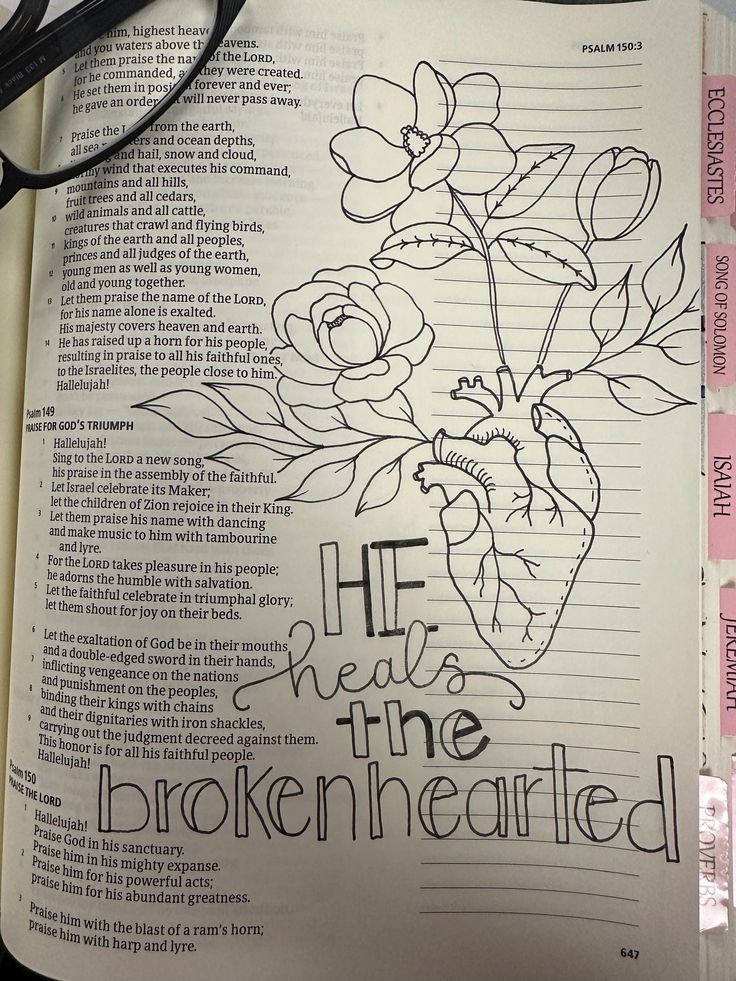 PSALM 150:3
him, highest heav
and you waters above th eavens.
5 Let them praise the na of the LORD,
for he commanded, a they were created.
6 He set them in posi forever and ever;
he gave an order t will never pass away.
7 Praise the L from the earth,
all sea ers and ocean depths,
and hail, snow and cloud,
my wind that executes his command,
9 mountains and all hills,
fruit trees and all cedars,
10 wild animals and all cattle,
creatures that crawl and flying birds,
11 kings of the earth and all peoples,
princes and all judges of the earth,
12 young men as well as young women,
old and young together.
13 Let them praise the name of the LORD,
for his name alone is exalted.
His majesty covers heaven and earth.
14 He has raised up a horn for his people,
resulting in praise to all his faithful ones,
to the Israelites, the people close to him.
Hallelujah!
Psalm 149
PRAISE FOR GOD'S TRIUMPH
1 Hallelujah!
Sing to the LORD a new song,
his praise in the assembly of the faithful.
2 Let Israel celebrate its Maker;
let the children of Zion rejoice in their King.
3 Let them praise his name with dancing
and make music to him with tambourine
and lyre.
4 For the LORD takes pleasure in his people;
he adorns the humble with salvation.
5 Let the faithful celebrate in triumphal glory;
let them shout for joy on their beds.
6 Let the exaltation of God be in their mouths
and a double-edged sword in their hands,
7 inflicting vengeance on the nations
and punishment on the peoples,
8 binding their kings with chains
and their dignitaries with iron shackles,
9 carrying out the judgment decreed against them.
This honor is for all his faithful people.
Hallelujah!
Psalm 150
PRAISE THE LORD
1 Hallelujah!
Praise God in his sanctuary.
Praise him in his mighty expanse.
2 Praise him for his powerful acts;
praise him for his abundant greatness.
3 Praise him with the blast of a ram's horn;
praise him with harp and lyre.
HE
heals
the
brokenhearted
647
ECCLESIASTES
SONG OF SOLOMON
ISAIAH
JEREMIAH
PROVERBS